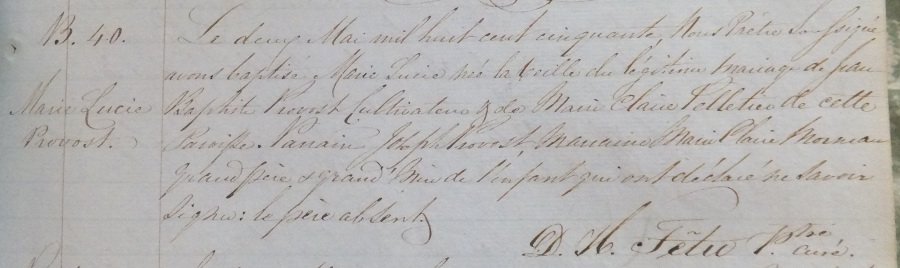 B. 40.
Marie Lucie
Provost.
Le deux Mai mil huit cent cinquante, Nous Prêtre Soussigné
avons baptisé Marie Lucie née la veille du légitime mariage de Jean
Baptiste Provost Cultivateur & de Marie Claire Pelletier de cette
Paroisse. Parrain Joseph Provost, Marraine Marie Claire Moreau
grand père & grand' Mère de l'enfant qui ont déclaré ne savoir
signer: le père absent.
D. H. Têtu Ptre
curé.